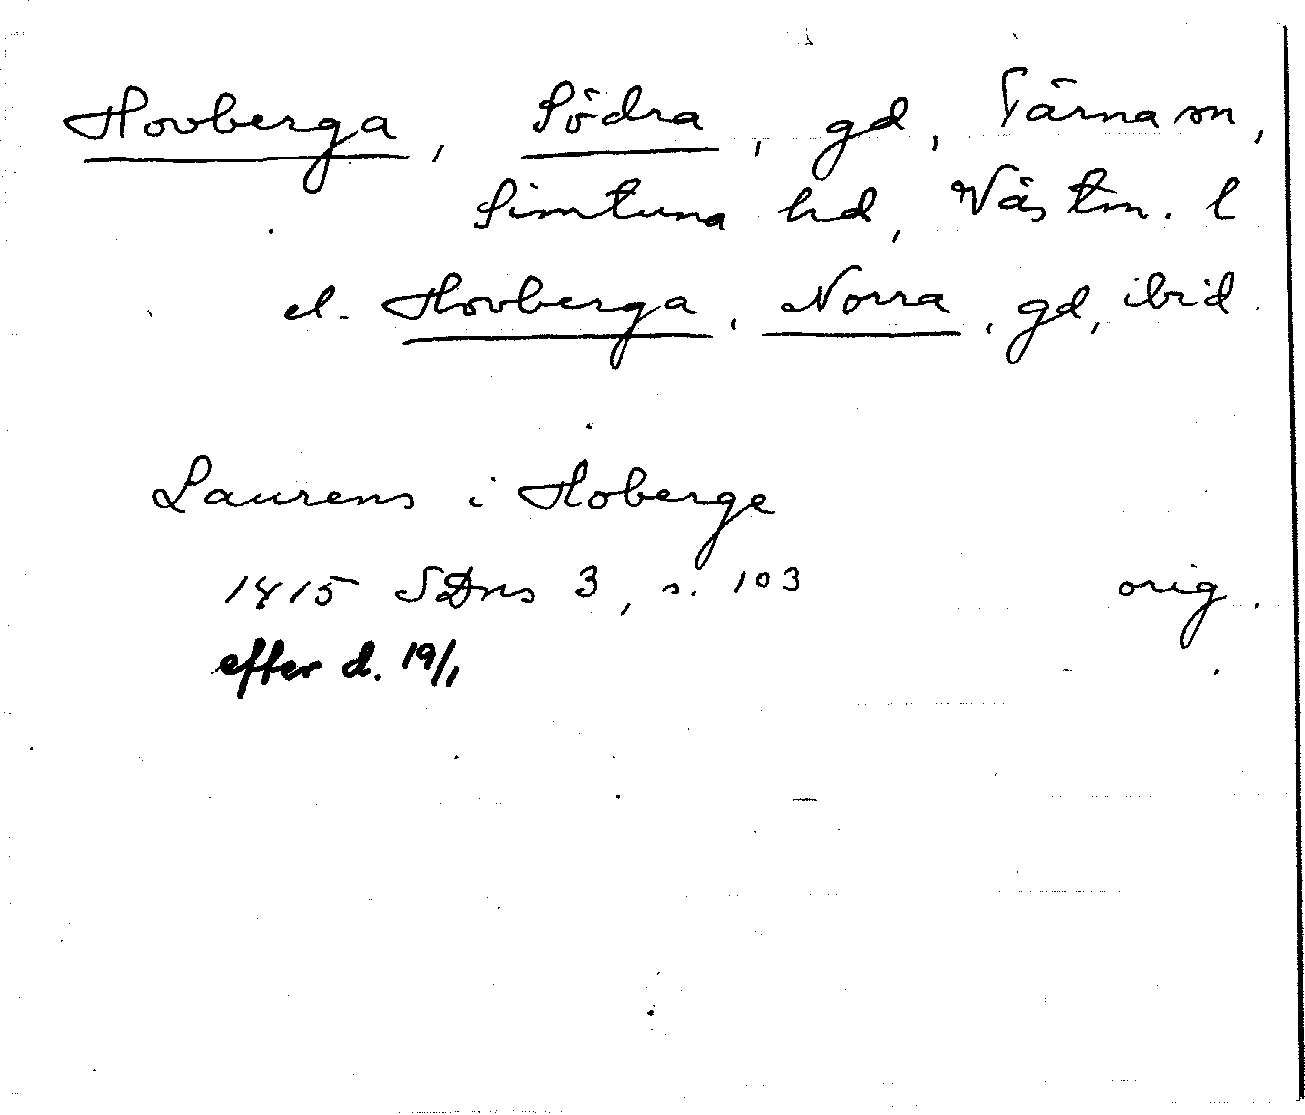 Hovberga, Södra, gd, Tärna sn,
Simtuna hd, Västm. l
el. Hovberga, Norra, gd, ibid.
Laurens i Hoberge
1415 SDns 3, s. 103 orig.
efter d. 19/1